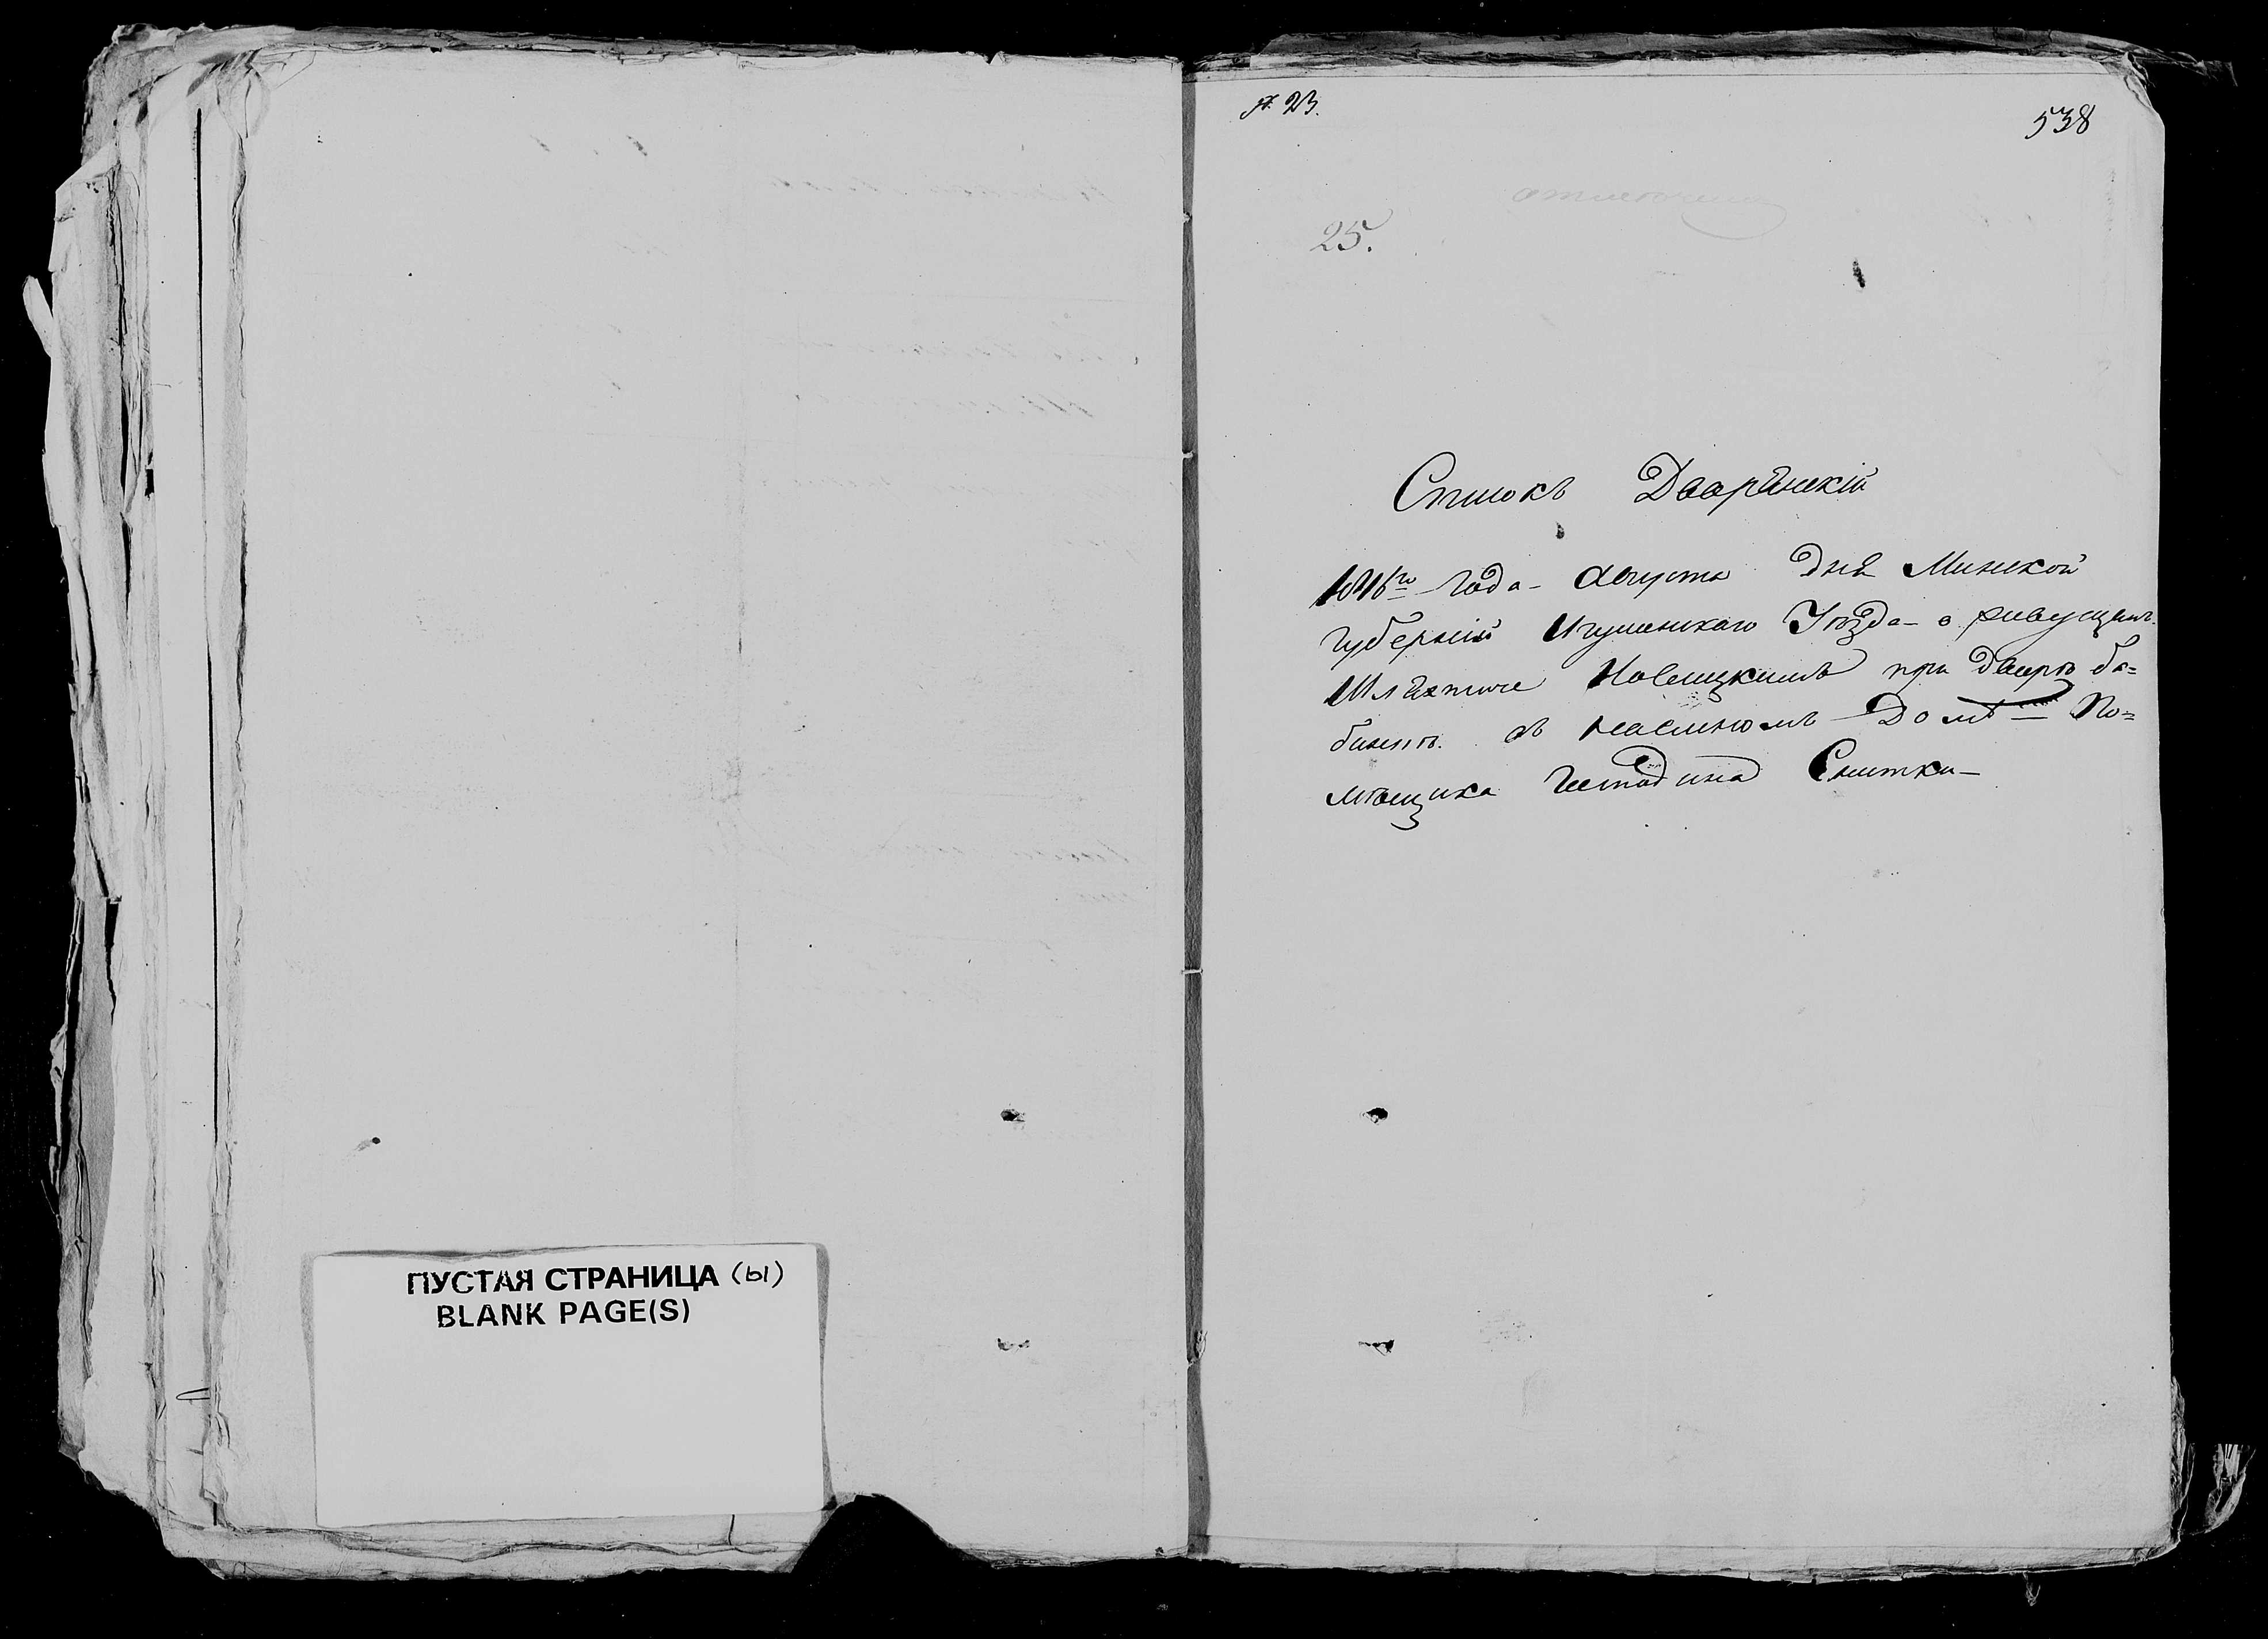 ПУСТАЯ СТРАНИЦА (ы)
BLANK PAGE(S)
538
25.
Списокъ Дворянскій
Года Августа дня Минской
Губерніи Игуменскаго Уѣзда о живущемъ
Шляхтиче Новицкимъ при дворѣ ба=
бинѣ. въ наемномъ Домѣ По=
мѣщика Господина Снитки